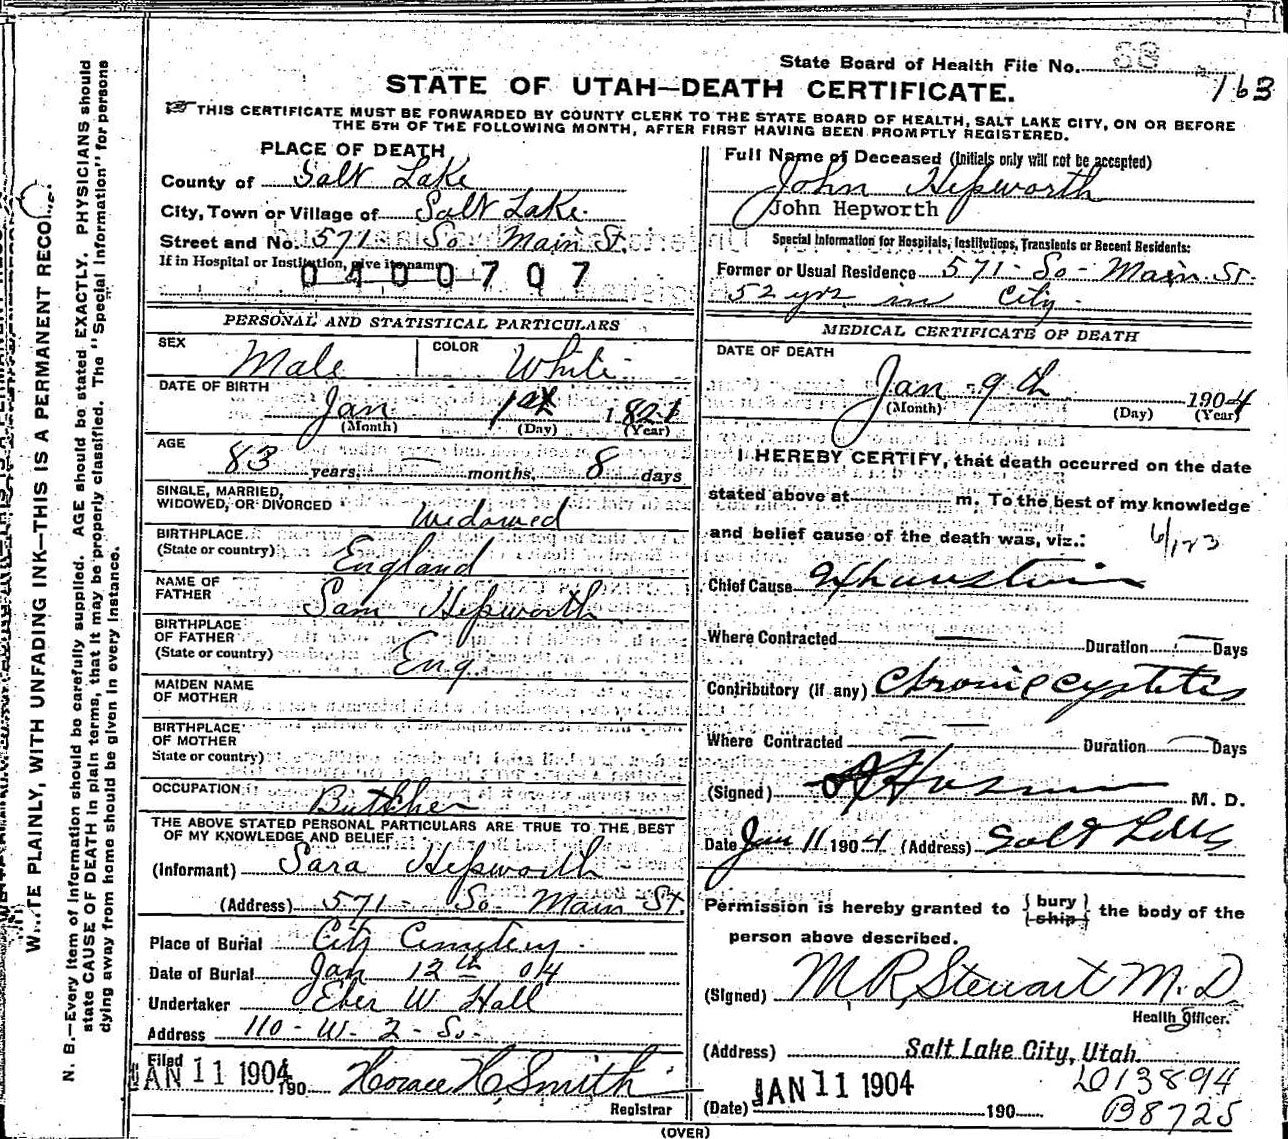 State Board of Health File No. 68
163
STATE OF UTAH—DEATH CERTIFICATE.
THIS CERTIFICATE MUST BE FORWARDED BY COUNTY CLERK TO THE STATE BOARD OF HEALTH, SALT LAKE CITY, ON OR BEFORE
THE 5TH OF THE FOLLOWING MONTH, AFTER FIRST HAVING BEEN PROMPTLY REGISTERED.
PLACE OF DEATH
County of Salt Lake
City, Town or Village of Salt Lake
Street and No. 571 So Main St.
If in Hospital or Institution, give its name
0400707
PERSONAL AND STATISTICAL PARTICULARS
SEX Male COLOR White
DATE OF BIRTH
Jan 1st 1821
(Month) (Day) (Year)
AGE
83 years, — months, 8 days
SINGLE, MARRIED,
WIDOWED, OR DIVORCED Widowed
BIRTHPLACE
(State or country) England
NAME OF
FATHER Sam Hepworth
BIRTHPLACE
OF FATHER
(State or country) Eng
MAIDEN NAME
OF MOTHER
BIRTHPLACE
OF MOTHER
State or country)
OCCUPATION Butcher
THE ABOVE STATED PERSONAL PARTICULARS ARE TRUE TO THE BEST
OF MY KNOWLEDGE AND BELIEF
(Informant) Sara Hepworth
(Address) 571 - So Main St.
Place of Burial City Cemetery
Date of Burial Jan 12th 04
Undertaker Eber W Hall
Address 110 - W - 2 - So -
Filed
JAN 11 1904 190 Horace H Smith
Registrar
Full Name of Deceased (Initials only will not be accepted)
John Hepworth
John Hepworth
Special Information for Hospitals, Institutions, Transients or Recent Residents:
Former or Usual Residence 571 - So - Main St.
52 yrs in City
MEDICAL CERTIFICATE OF DEATH
DATE OF DEATH
Jan 9th 1904
(Month) (Day) (Year)
I HEREBY CERTIFY, that death occurred on the date
stated above at m. To the best of my knowledge
and belief cause of the death was, viz.:
Chief Cause Exhaustion
Where Contracted — Duration — Days
Contributory (if any) Chronic cystitis
Where Contracted — Duration — Days
(Signed) M. D.
Date Jan 11 1904 (Address) Salt
Permission is hereby granted to { bury
ship } the body of the
person above described.
(Signed) M. R. Stewart M. D.
Health Officer.
(Address) Salt Lake City, Utah.
(Date) JAN 11 1904 190
L013894
B8725
(OVER)
WRITE PLAINLY, WITH UNFADING INK—THIS IS A PERMANENT RECORD.
N. B.—Every item of information should be carefully supplied. AGE should be stated EXACTLY. PHYSICIANS should
state CAUSE OF DEATH in plain terms, that it may be properly classified. The "Special Information" for persons
dying away from home should be given in every instance.